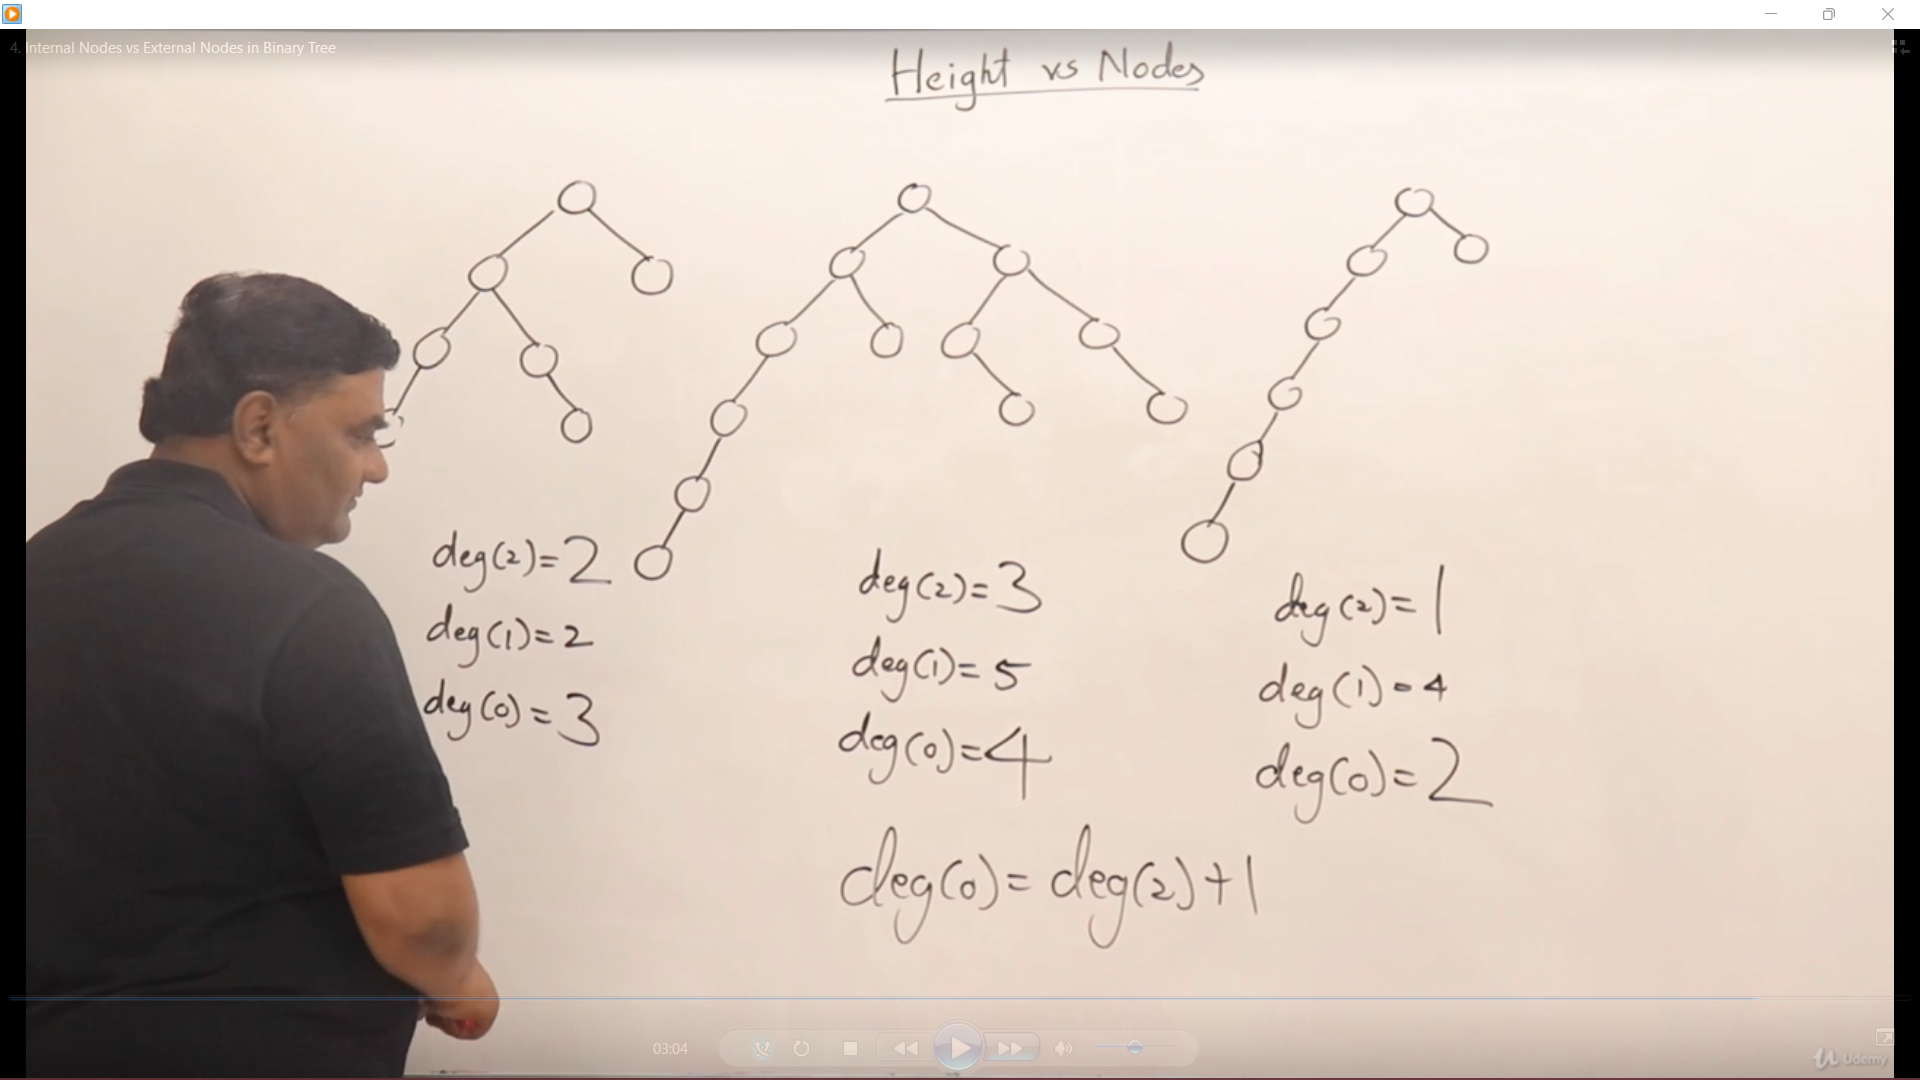 4. Internal Nodes vs External Nodes in Binary Tree
Height vs Nodes
deg(2)=2
deg(1)=2
deg(0)=3
deg(2)=3
deg(1)=5
deg(0)=4
deg(2)=1
deg(1)=4
deg(0)=2
deg(0)=deg(2)+1
03:04
Udemy